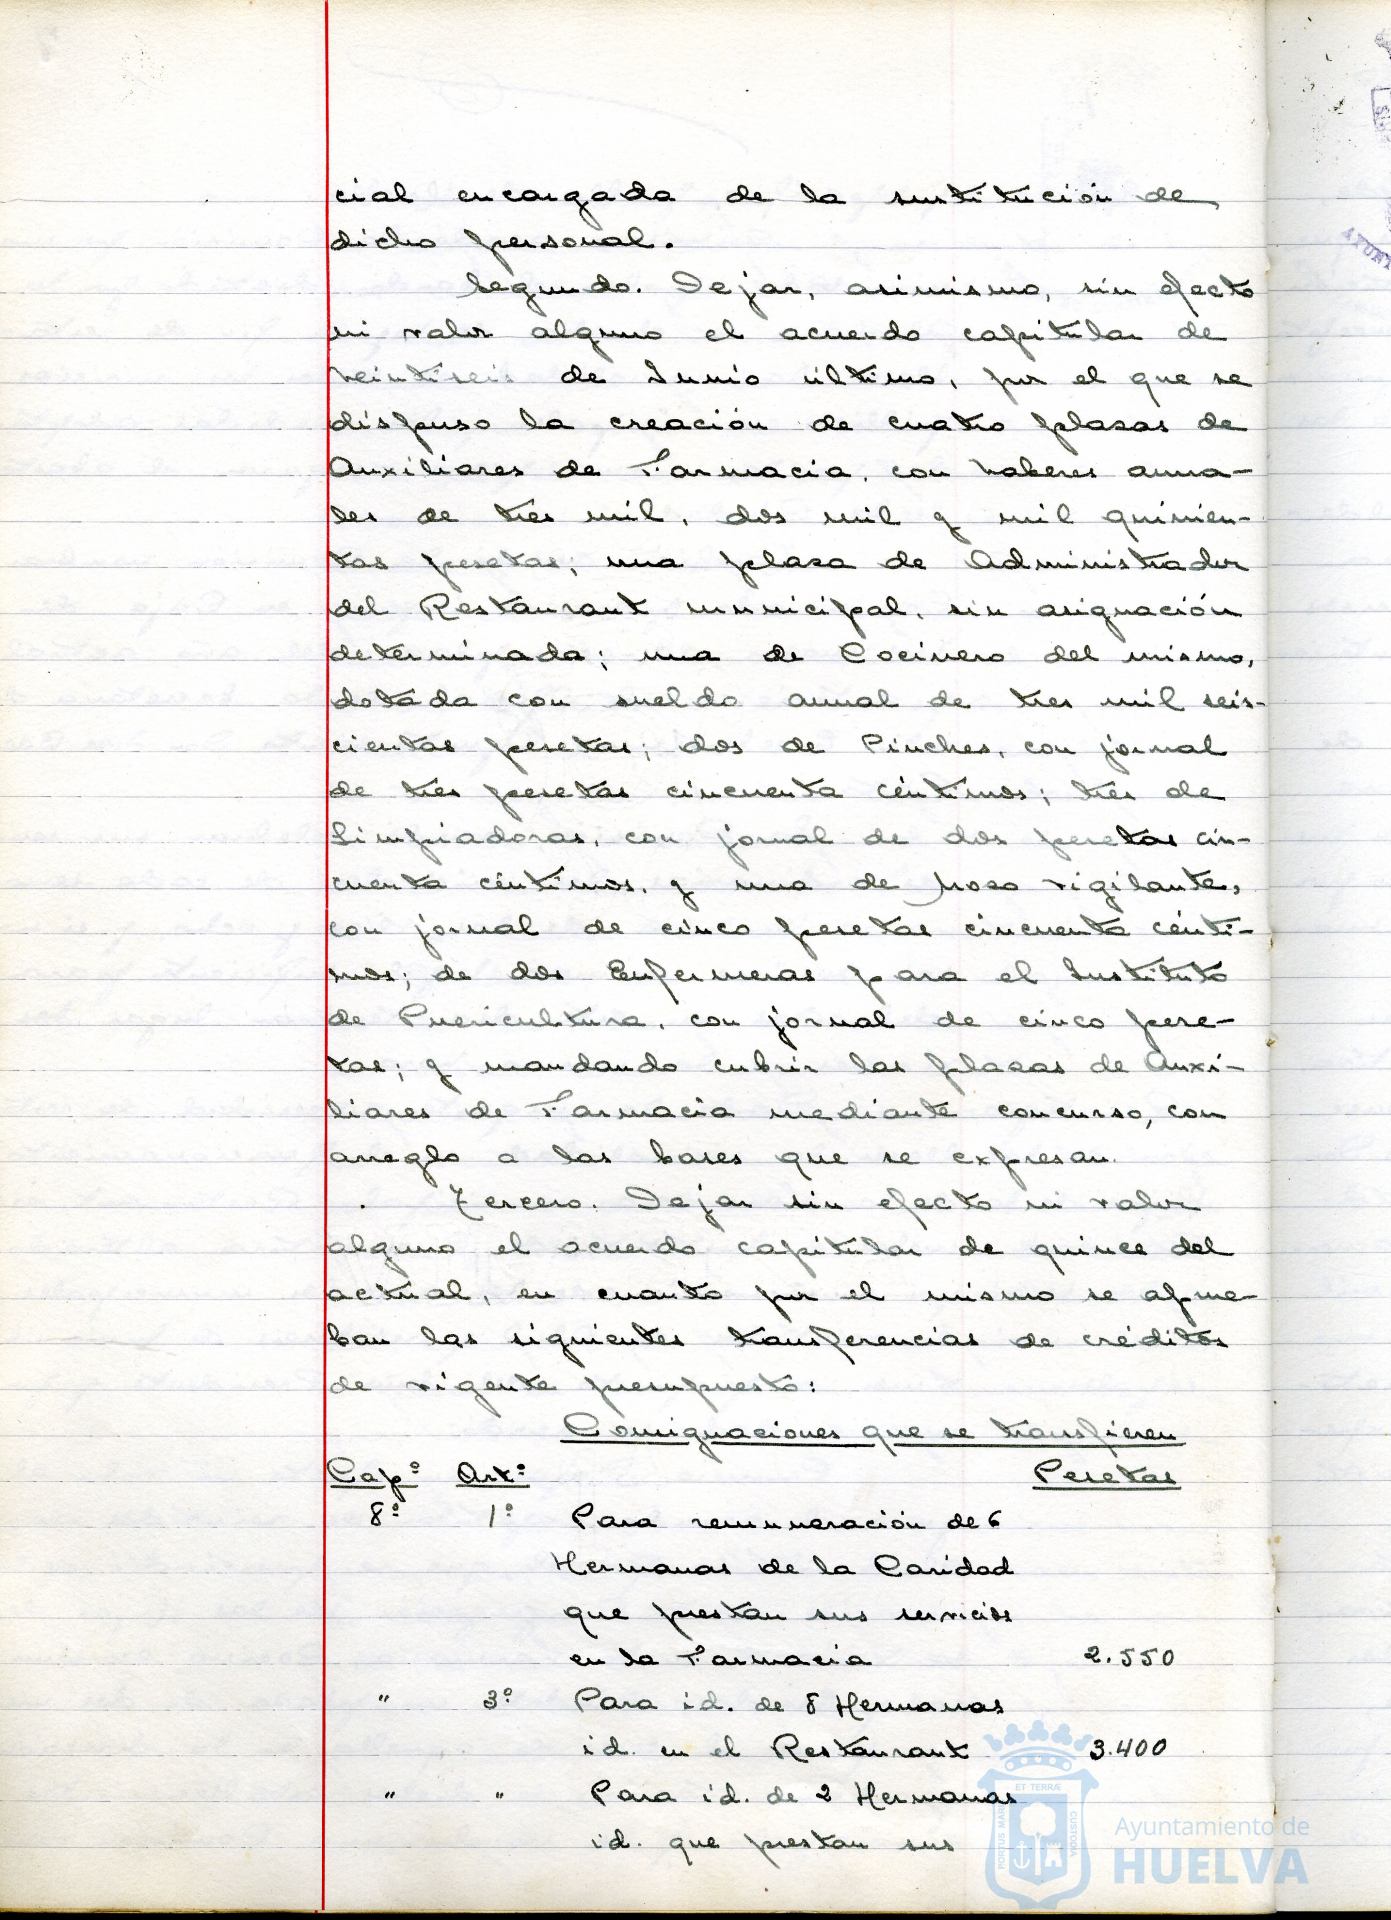 cial encargada de la sustitución de
dicho personal.
Segundo. Dejar, asimismo, sin efecto
ni valor alguno el acuerdo capitular de
veintiseis de Junio último, por el que se
dispuso la creación de cuatro plazas de
Auxiliares de Farmacia, con haberes anua-
les de tres mil, dos mil y mil quinien-
tas pesetas; una plaza de Administrador
del Restaurant municipal, sin asignación
determinada; una de Cocinero del mismo,
dotada con sueldo anual de tres mil seis-
cientas pesetas; dos de Pinches, con jornal
de tres pesetas cincuenta céntimos; tres de
Limpiadoras, con jornal de dos pesetas cin-
cuenta céntimos, y una de Mozo vigilante,
con jornal de cinco pesetas cincuenta cénti-
mos; de dos Enfermeras para el Instituto
de Puericultura, con jornal de cinco pese-
tas; y mandando cubrir las plazas de Auxi-
liares de Farmacia mediante concurso, con
arreglo a las bases que se expresan.
Tercero. Dejar sin efecto ni valor
alguno el acuerdo capitular de quince del
actual, en cuanto por el mismo se aprue-
ban las siguientes transferencias de créditos
de vigente presupuesto:
Consignaciones que se transfieren
Capº Artº Pesetas
8º 1º Para remuneración de 6
Hermanas de la Caridad
que prestan sus servicios
en la Farmacia 2.550
" 3º Para id. de 8 Hermanas
id. en el Restaurant 3.400
" " Para id. de 2 Hermanas
id. que prestan sus
ET TERRÆ
PORTUS MARIS
CUSTODIA
Ayuntamiento de
HUELVA